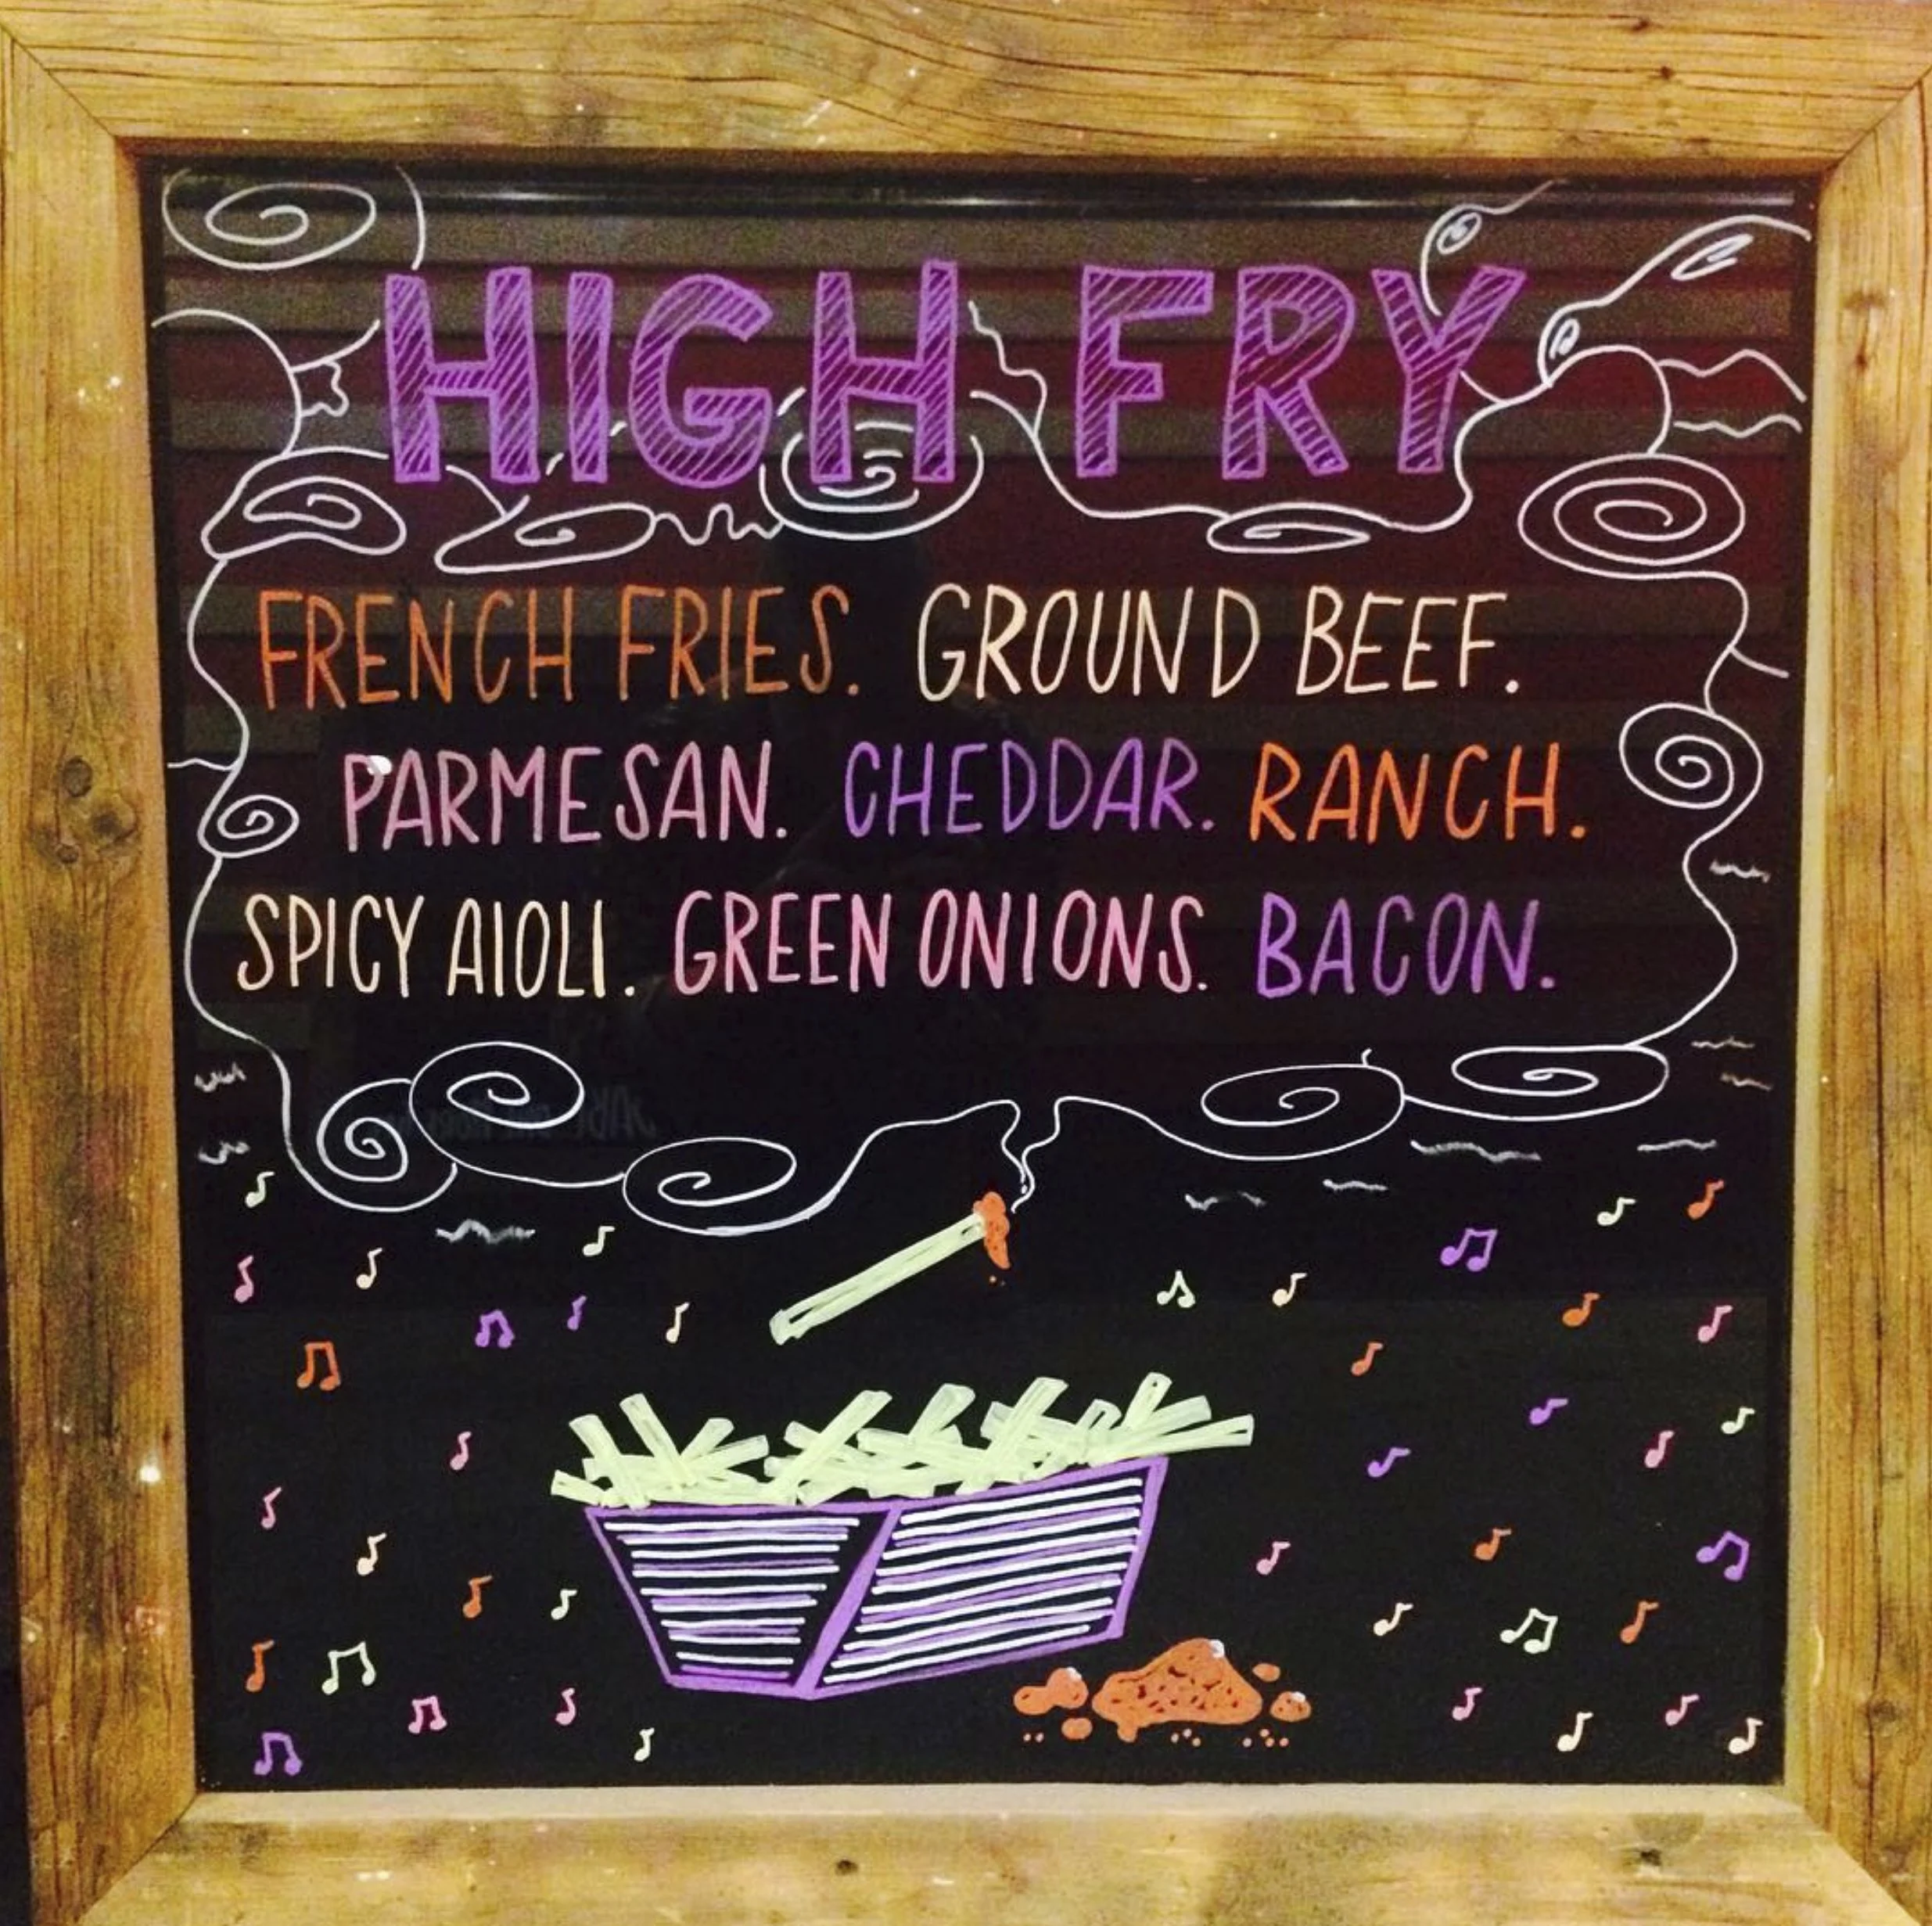 HIGH FRY
FRENCH FRIES. GROUND BEEF.
PARMESAN. CHEDDAR. RANCH.
SPICY AIOLI. GREEN ONIONS. BACON.